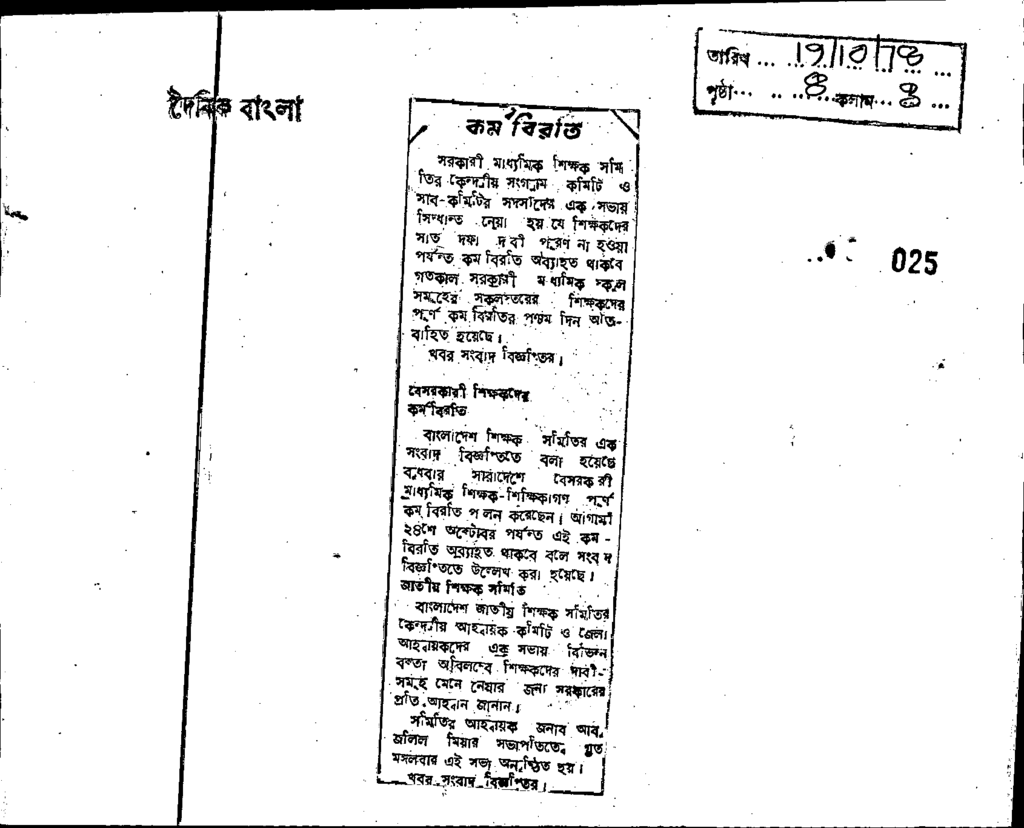 দৈনিক বাংলা
তারিখ ... 19/10/78 ...
পৃষ্ঠা... ... ৪ ... কলাম... ...
025
কর্মবিরতি
সরকারী মাধ্যমিক শিক্ষক সমি-
তির কেন্দ্রীয় সংগ্রাম কমিটি ও
সাব-কমিটির সদস্যদের এক সভায়
সিদ্ধান্ত নেয়া হয় যে শিক্ষকদের
সাত দফা দাবী পূরণ না হওয়া
পর্যন্ত কর্মবিরতি অব্যাহত থাকবে
গতকাল সরকারী মাধ্যমিক স্কুল
সমূহের সকলস্তরের শিক্ষকদের
পূর্ণ কর্মবিরতির পঞ্চম দিন অতি-
বাহিত হয়েছে।
খবর সংবাদ বিজ্ঞপ্তির।
বেসরকারী শিক্ষকদের
কর্মবিরতি
বাংলাদেশ শিক্ষক সমিতির এক
সংবাদ বিজ্ঞপ্তিতে বলা হয়েছে
বুধবার সারাদেশে বেসরকারী
মাধ্যমিক শিক্ষক-শিক্ষিকাগণ পূর্ণ
কর্মবিরতি পালন করেছেন। আগামী
২৪শে অক্টোবর পর্যন্ত এই কর্ম-
বিরতি অব্যাহত থাকবে বলে সংবাদ
বিজ্ঞপ্তিতে উল্লেখ করা হয়েছে।
জাতীয় শিক্ষক সমিতি
বাংলাদেশ জাতীয় শিক্ষক সমিতির
কেন্দ্রীয় আহ্বায়ক কমিটি ও জেলা
আহ্বায়কদের এক সভায় বিভিন্ন
বক্তা অবিলম্বে শিক্ষকদের দাবী-
সমূহ মেনে নেয়ার জন্য সরকারের
প্রতি আহ্বান জানান।
সমিতির আহ্বায়ক জনাব আব্দুল
জলিল মিয়ার সভাপতিত্বে গত
মঙ্গলবার এই সভা অনুষ্ঠিত হয়।
খবর সংবাদ বিজ্ঞপ্তির।